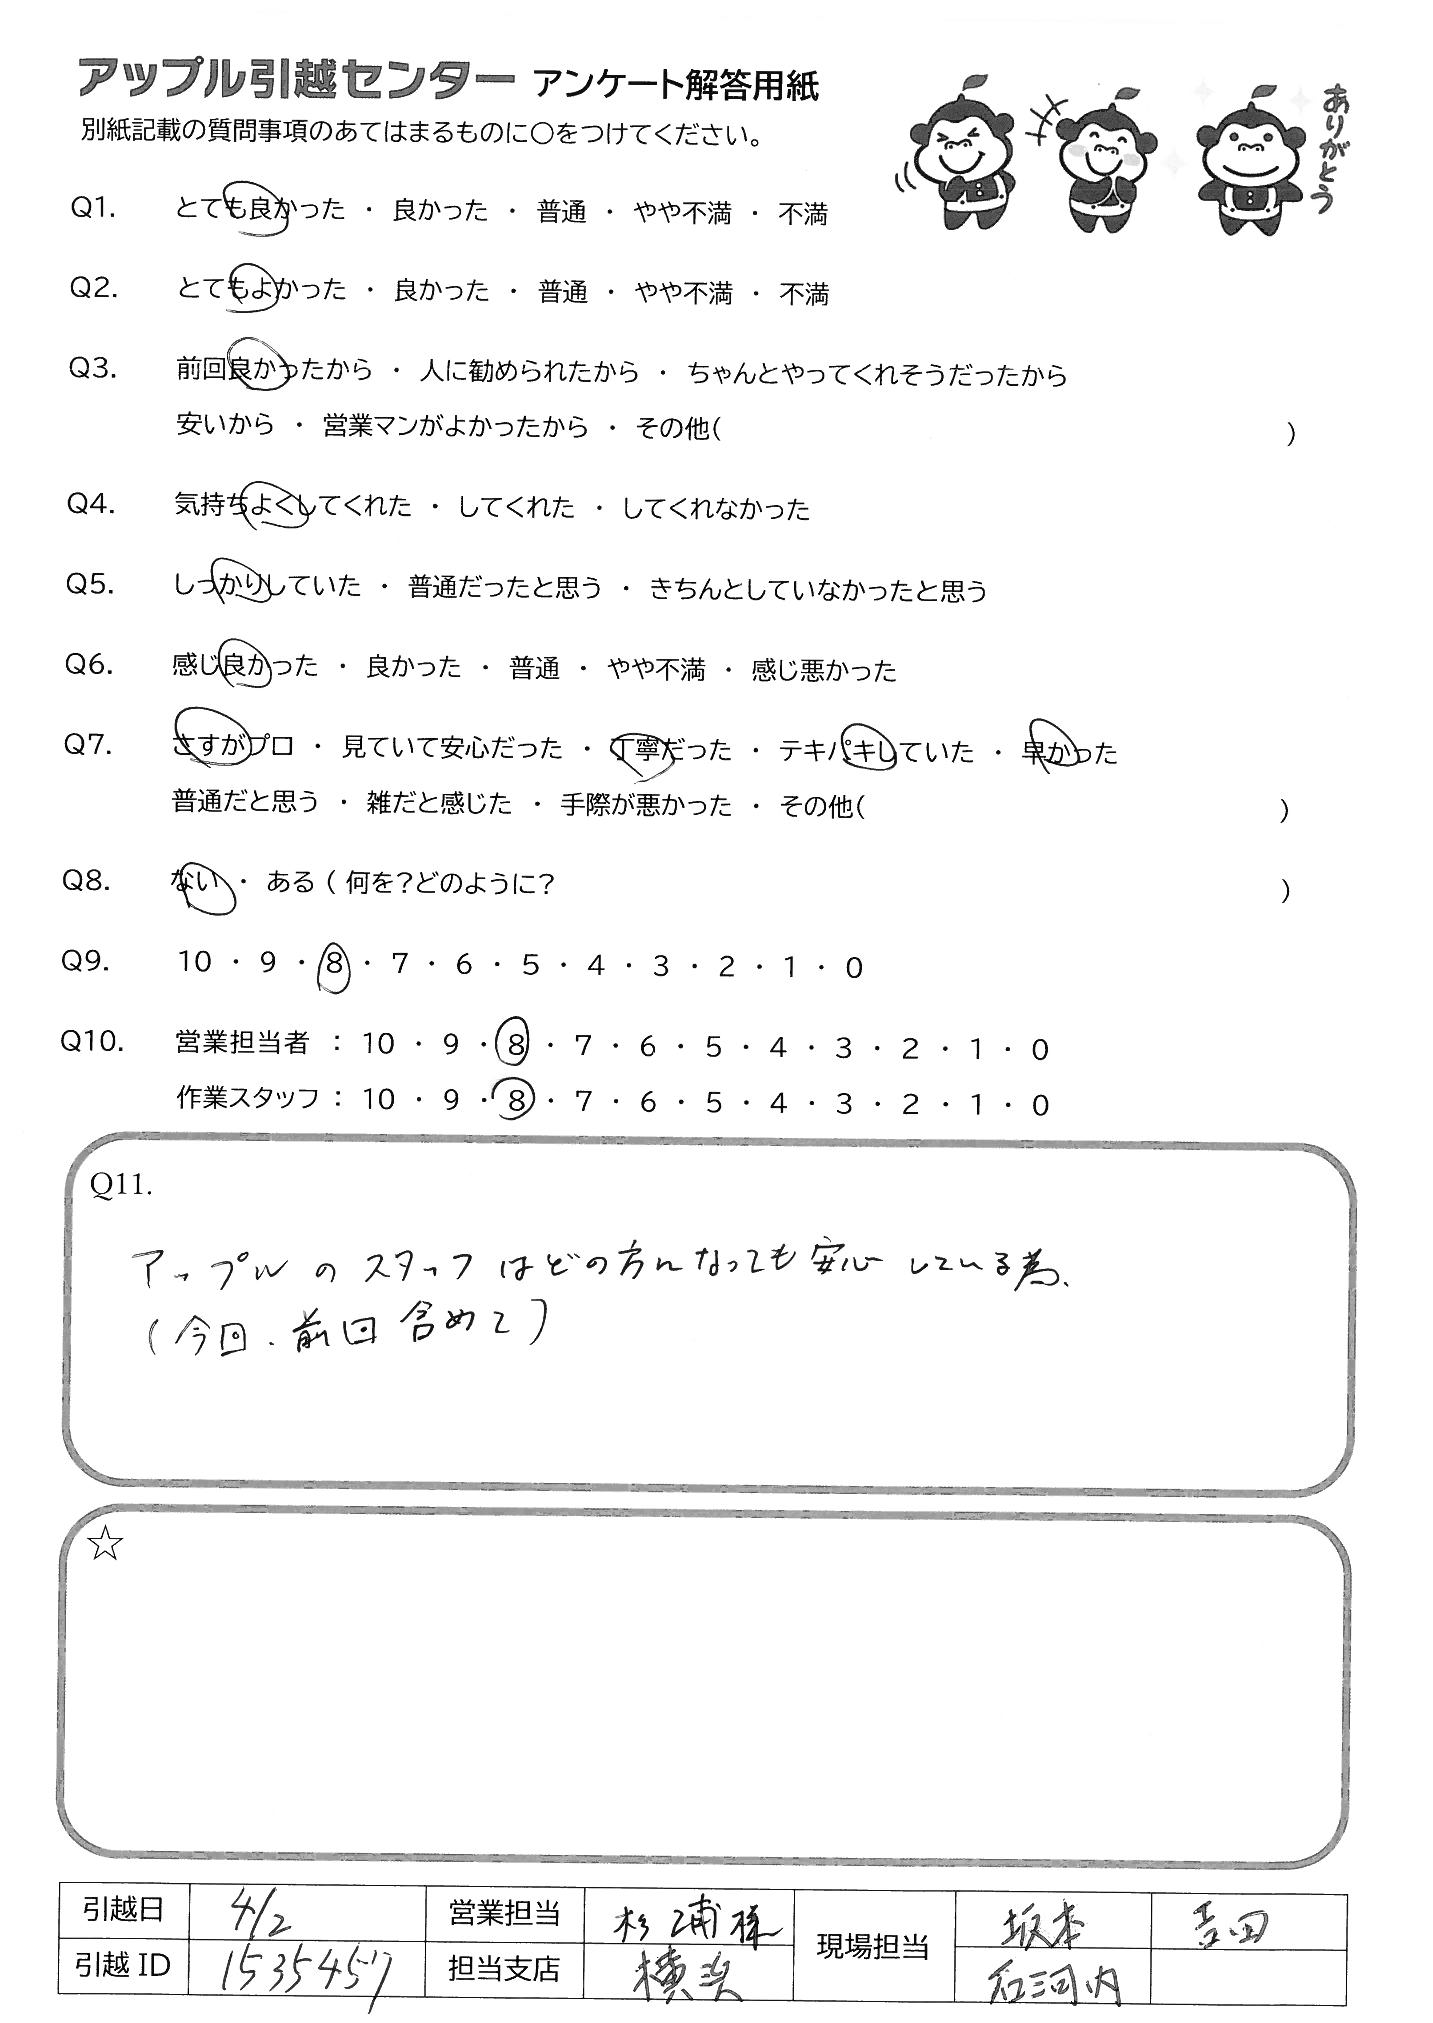 アップル引越センター アンケート解答用紙
別紙記載の質問事項のあてはまるものに〇をつけてください。
ありがとう
Q1. とても良かった ・ 良かった ・ 普通 ・ やや不満 ・ 不満
Q2. とてもよかった ・ 良かった ・ 普通 ・ やや不満 ・ 不満
Q3. 前回良かったから ・ 人に勧められたから ・ ちゃんとやってくれそうだったから
安いから ・ 営業マンがよかったから ・ その他( )
Q4. 気持ちよくしてくれた ・ してくれた ・ してくれなかった
Q5. しっかりしていた ・ 普通だったと思う ・ きちんとしていなかったと思う
Q6. 感じ良かった ・ 良かった ・ 普通 ・ やや不満 ・ 感じ悪かった
Q7. さすがプロ ・ 見ていて安心だった ・ 丁寧だった ・ テキパキしていた ・ 早かった
普通だと思う ・ 雑だと感じた ・ 手際が悪かった ・ その他( )
Q8. ない ・ ある ( 何を?どのように? )
Q9. 10 ・ 9 ・ 8 ・ 7 ・ 6 ・ 5 ・ 4 ・ 3 ・ 2 ・ 1 ・ 0
Q10. 営業担当者 : 10 ・ 9 ・ 8 ・ 7 ・ 6 ・ 5 ・ 4 ・ 3 ・ 2 ・ 1 ・ 0
作業スタッフ : 10 ・ 9 ・ 8 ・ 7 ・ 6 ・ 5 ・ 4 ・ 3 ・ 2 ・ 1 ・ 0
Q11.
アップルのスタッフはどの方になっても安心している為、
(今回、前回含めて)
☆
引越日 4/2 営業担当 杉浦様 現場担当 坂本 吉田
引越 ID 1535457 担当支店 横浜 石河内